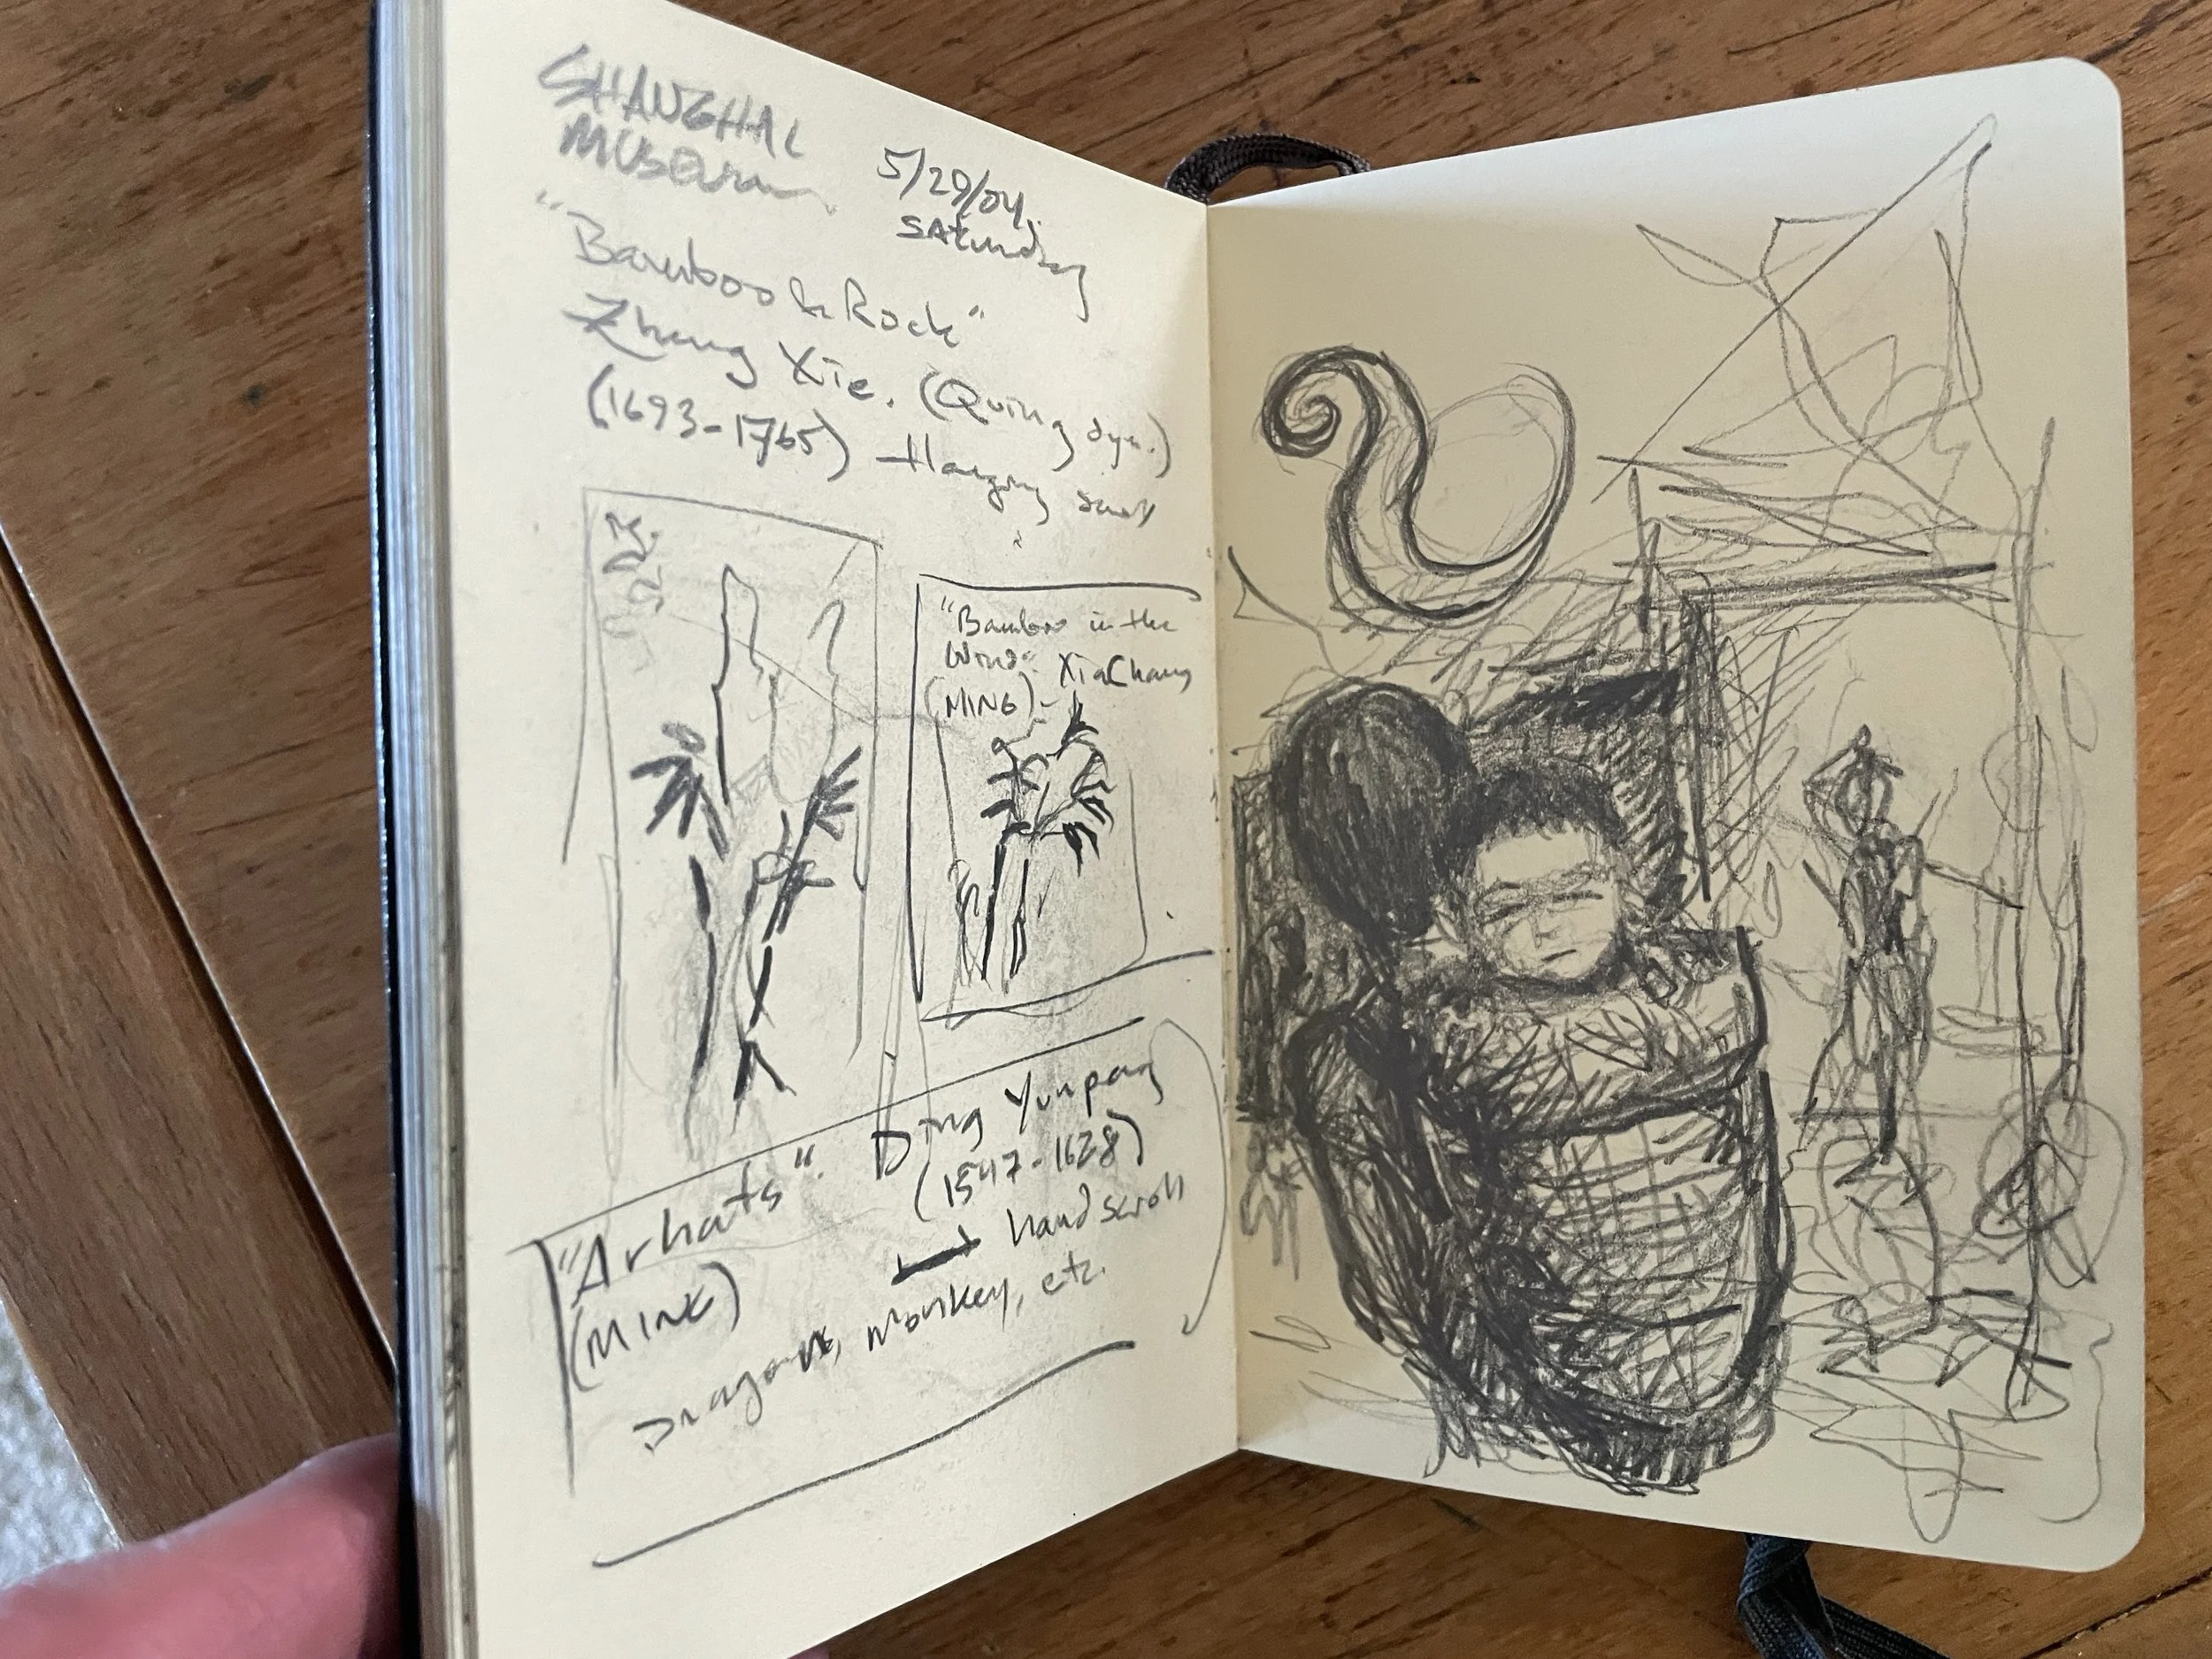 SHANGHAI
MUSEUM
5/29/04
SATURDAY
"Bamboo & Rock"
Zheng Xie. (Quing dyn.)
(1693-1765) Hanging scroll
"Bamboo in the
Wind". Xia Chang
(MING)-
"Arhats". Ding Yunpeng
(1547-1628)
(MING)
hand scroll
Dragons, monkey, etc.